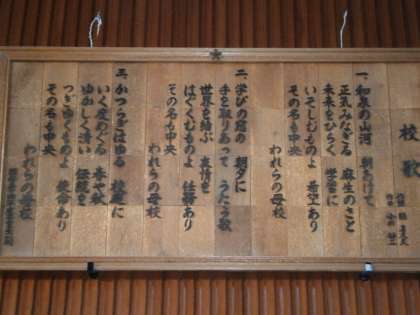 校歌
一、和泉の山河 朝あけて
正気みなぎる 麻生のさと
未来をひらく 学舎に
いそしむものよ 希望あり
その名も中央
われらの母校
二、学びの窓の 朝夕に
手を取りあって うたう歌
世界を結ぶ 友情を
はぐくむものよ 任務あり
その名も中央
われらの母校
三、かつらぎはゆる 校庭に
いく度めぐる 春や秋
ゆかしく清い 伝統を
つぎゆくものよ 使命あり
その名も中央
われらの母校